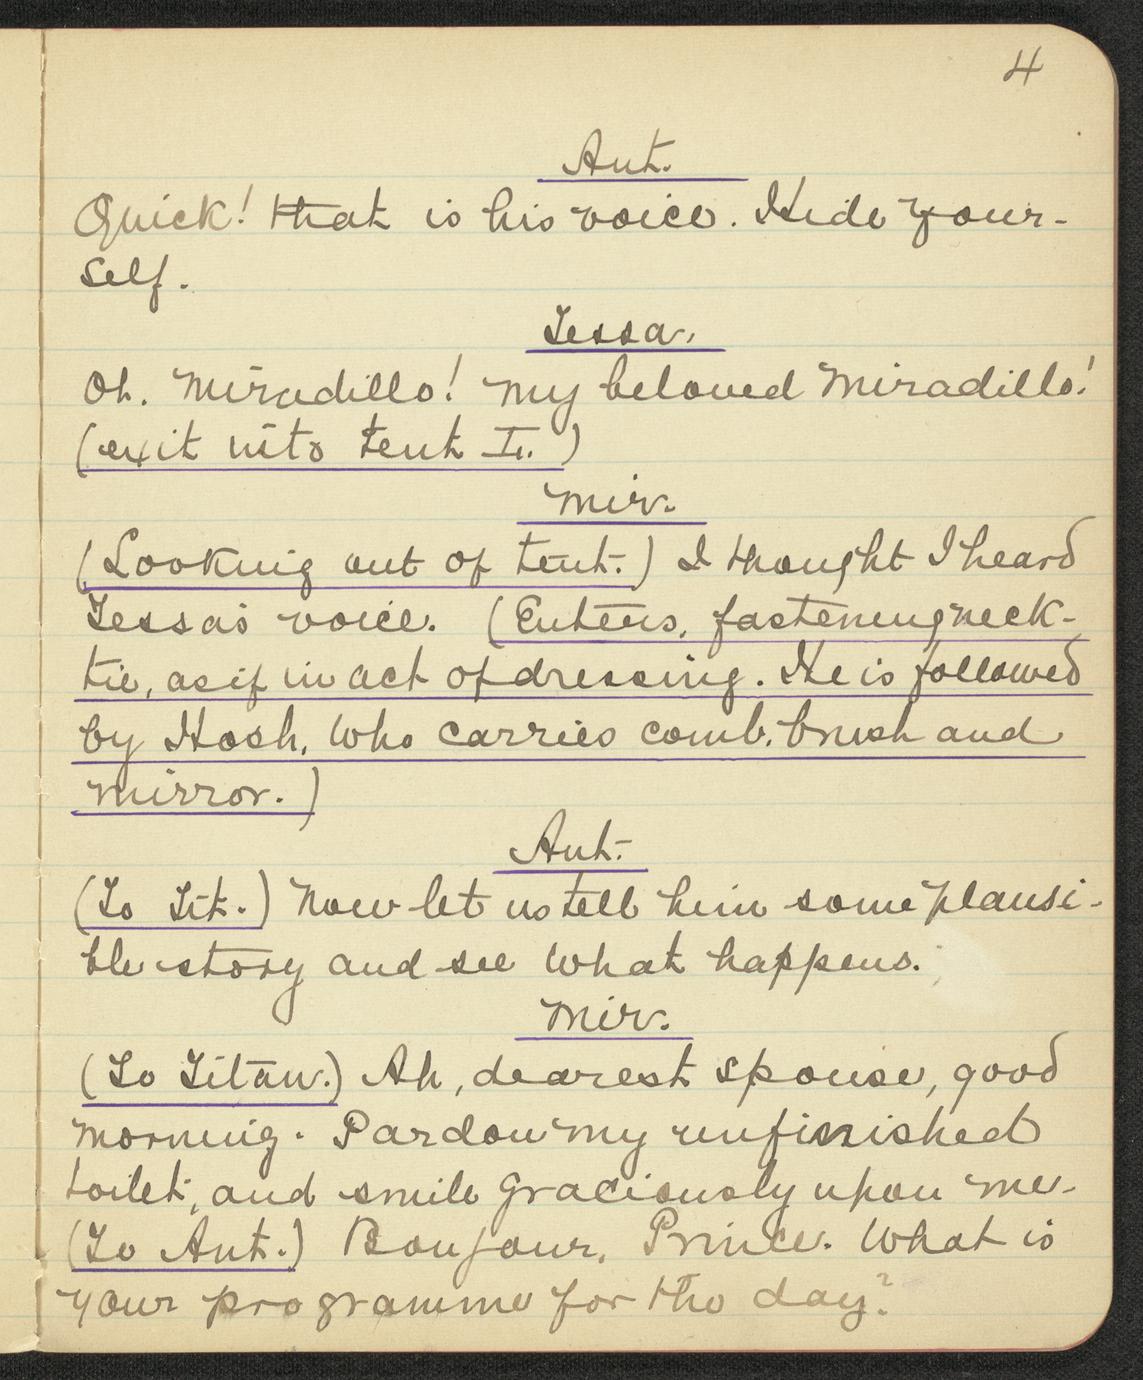 4
Ant.
Quick! that is his voice. Hide your-
self.
Tessa.
Oh. Miradillo! My beloved Miradillo!
(exit into tent I.)
Mir.
(Looking out of tent.) I thought I heard
Tessa's voice. (Enters, fastening neck-
tie, as if in act of dressing. He is followed
by Hosh, who carries comb, brush and
mirror.)
Ant.
(To Tit.) Now let us tell him some plausi-
ble story and see what happens.
Mir.
(To Titan.) Ah, dearest spouse, good
morning. Pardon my unfinished
toilet, and smile graciously upon me.
(To Ant.) Bonjour, Prince. What is
your programme for the day?